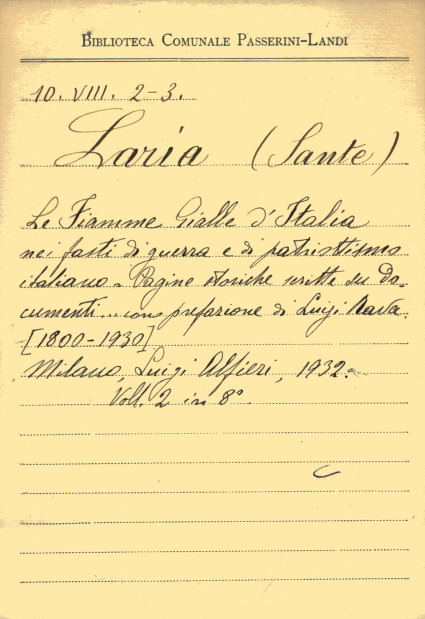 BIBLIOTECA COMUNALE PASSERINI-LANDI
10. VIII. 2-3.
Laria (Sante)
Le Fiamme Gialle d'Italia
nei fasti di guerra e di patriottismo
italiano - Pagine storiche scritte su Do-
cumenti... con prefazione di Luigi Rava.
[1800-1930]
Milano, Luigi Alfieri, 1932.
Voll. 2 in 8º